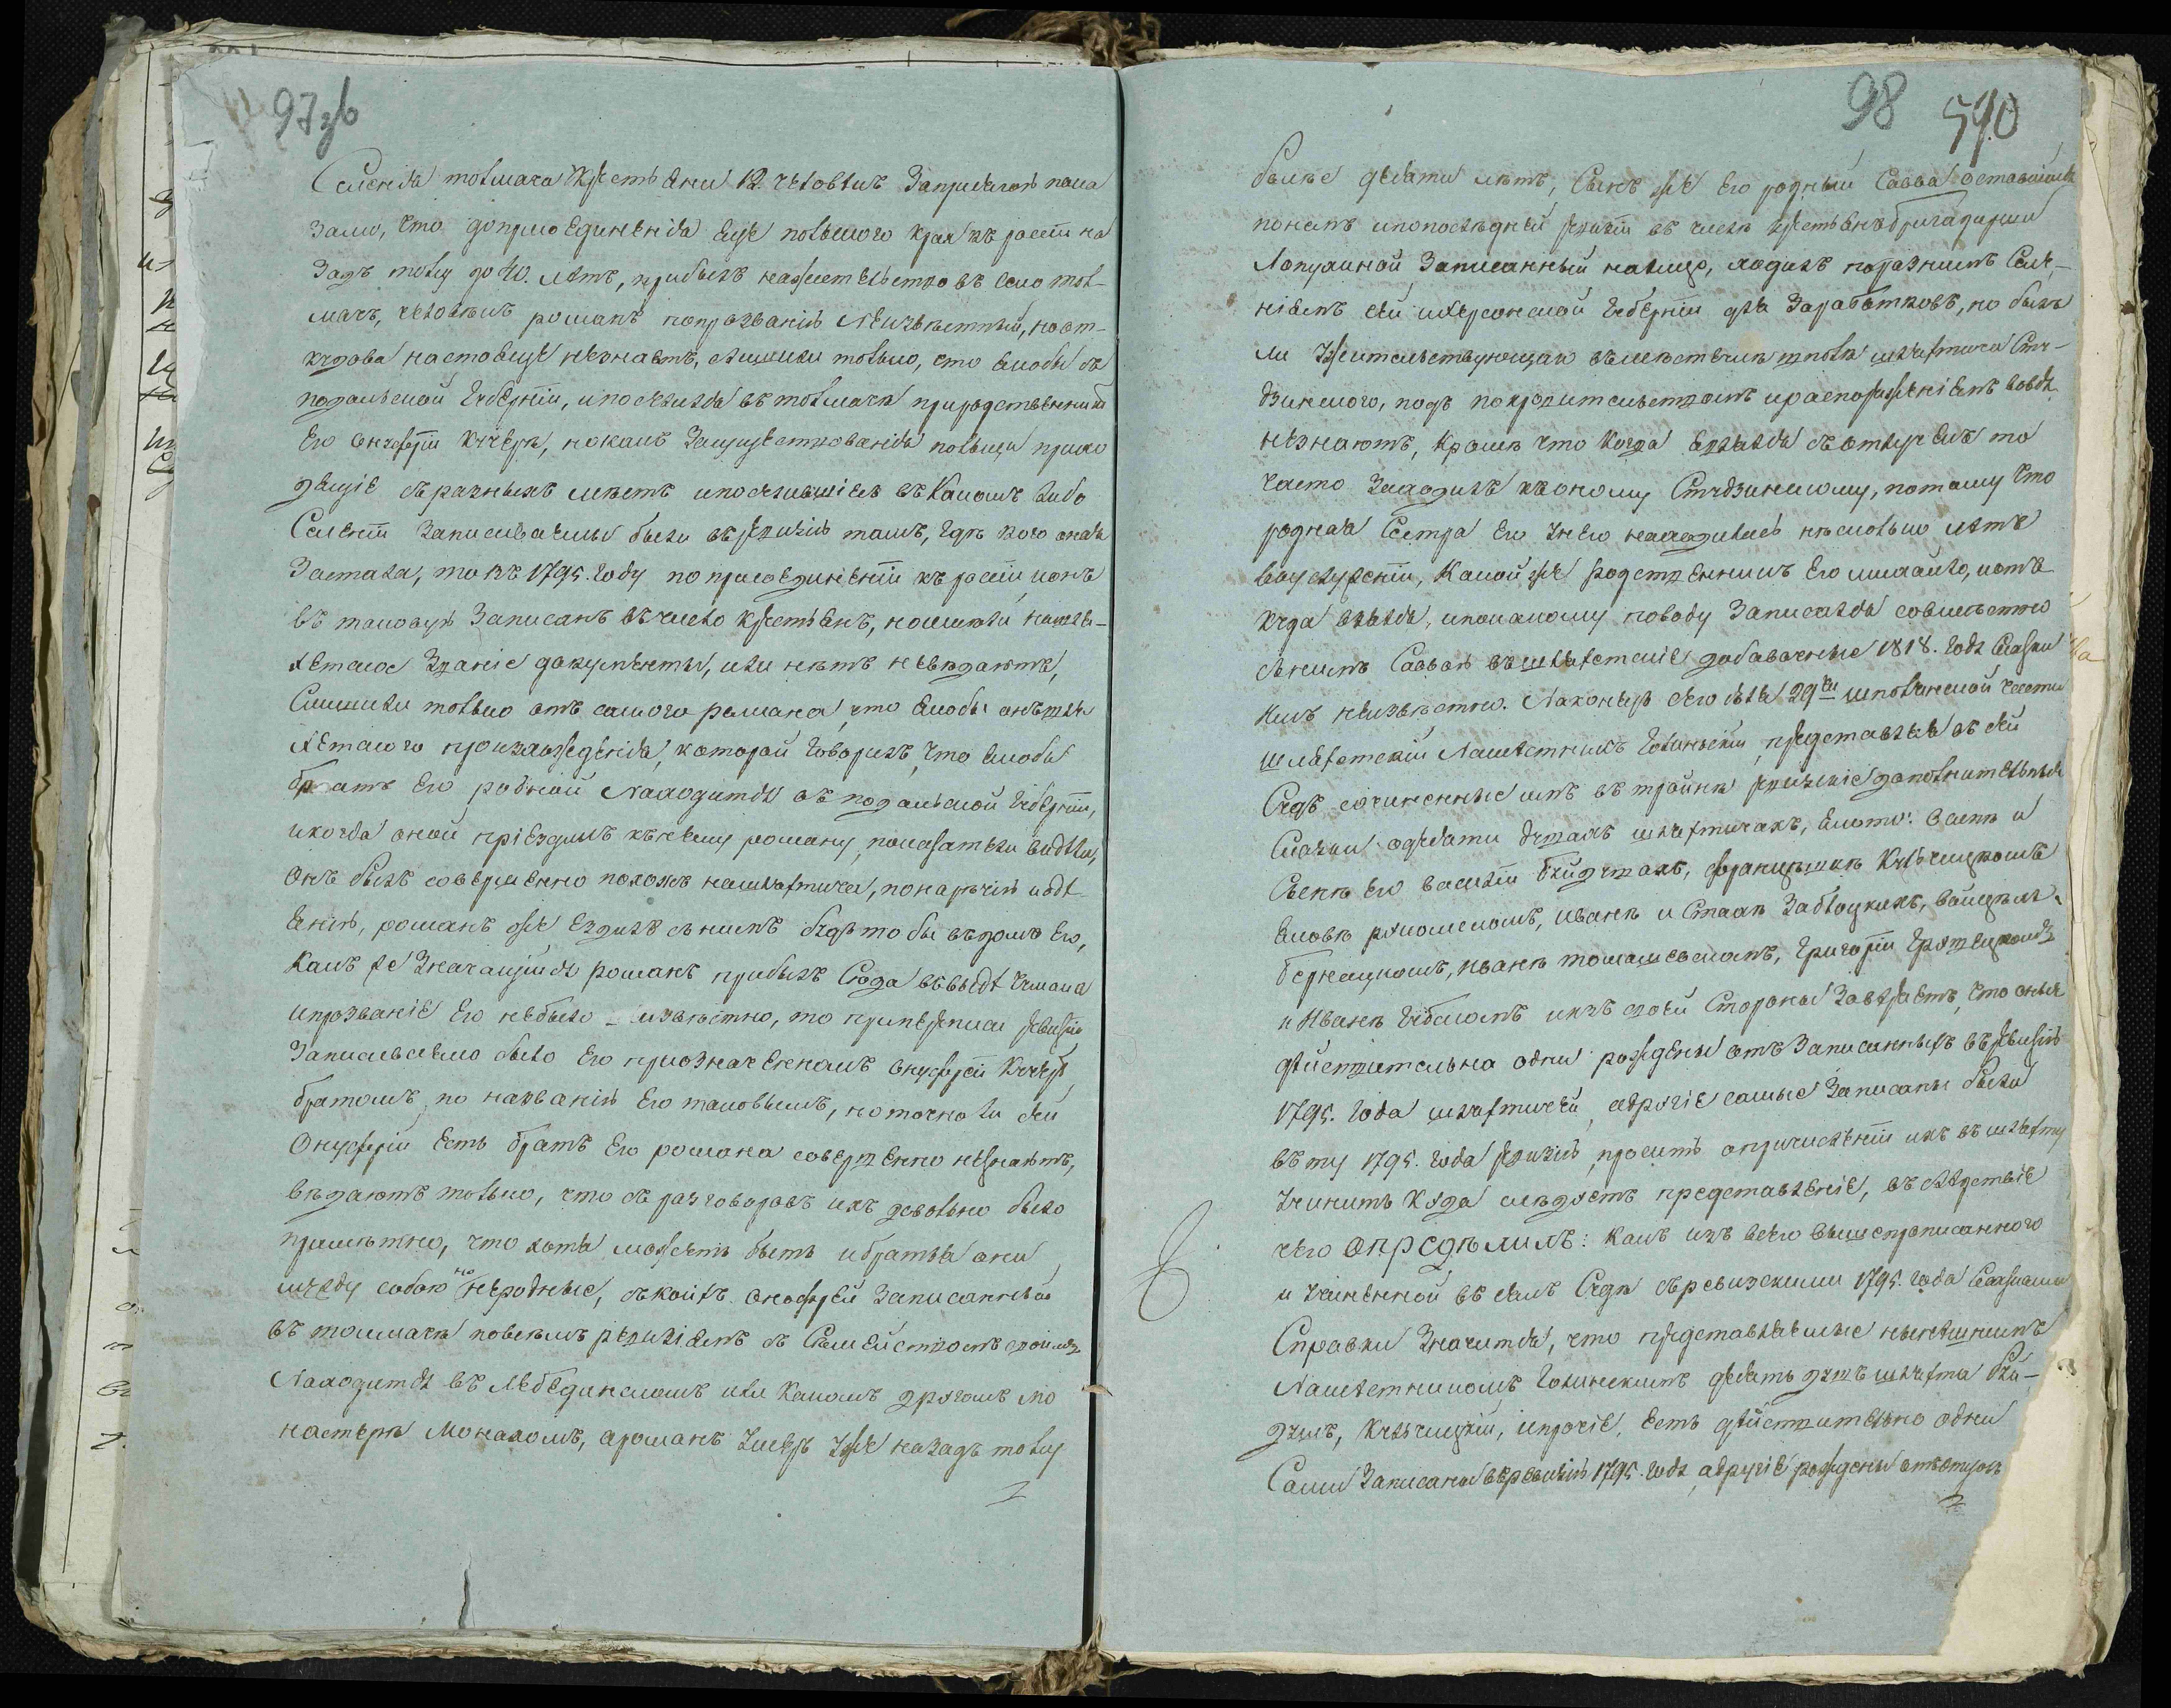 97 зв
Селенія толмача крестьяни 12. человѣкъ За присягою пока
зали, что до присоединенія еще польского края къ россіи на
Задъ тому до 40. лѣтъ, прибылъ на жительство въ село тол
мачъ, человѣкъ романъ по прозванію неизвѣстный, но от
кудова настояще незнаютъ, слышили только, что якобы съ
подольской Губерніи, и поселился въ толмачѣ при родственники
его онуфріи Кучерѣ, но какъ За существованія польщи прихо
дящіе съ разныхъ мѣстъ и поселившіесь въ какомъ либо
Селеніи Записываемы были въ ревизію тамъ, гдѣ кого оная
Застала, то въ 1795. году по присоединеніи къ россіи и онъ
въ таковую Записанъ въ число крестьянъ, но имѣли на шля-
хетское Званіе документы, или нѣтъ невѣдаютъ,
Слышили только отъ самого романа, что якобы онъ шля
хетского произхожденія, которой говорилъ, что якобы
братъ его родной Находится въ подольской губерніи,
и когда оной пріездилъ къ нему роману, показатели видѣли,
Онъ былъ совершенно похожъ на шляхтича, по наречію и одѣ
янію, романъ же ездилъ съ нимъ будто бы въ домъ его,
Какъ же Значащійся романъ прибылъ Сюда
и прозваніе его небыло извѣстно, то при переписи ревизіи
Записывано было его при означенномъ онуфрѣи Кучерѣ
братомъ, по названію его таковымъ, но точно ли сей
Онуфрій есть братъ его романа совершенно незнаютъ,
вѣдаютъ только, что съ разговоровъ ихъ довольно было
примѣтно, что хотя можетъ быть и братья они
между собою но неродные, съ коихъ онофрей Записанный
въ толмачѣ по всемъ ревизіямъ съ Семействомъ своимъ
Находится въ Лебединскомъ или какомъ другомъ мо
настырѣ Монахомъ, а романъ умеръ уже назадъ тому
98 590
более десяти лѣтъ, Сынъ же его родный Савва оставшійся
по немъ и по послѣдней ревизіи въ числѣ крестьянъ бригадирши
Лопухиной Записанный налицо, ходилъ по разнымъ Селе-
ніямъ сей и Херсонской Губерніи для Заработковъ, но былъ
ли Жительствующим въ мѣстечкѣ шполѣ шляхтича Сту-
дзинского, подъ покровительствомъ и распоряженіемъ вовся
незнаютъ, кромѣ что когда являлся съ отлучекъ то
часто Заходилъ къ оному Студзинскому, потому что
родная Сестра его у него находилась нѣсколько лѣтъ
въ услуженіи, Какой же родственникъ его михайло, и отъ
куда взялся, и по какому поводу Записался совмѣстно
съ нимъ Саввою въ шляхетскіе добавочные 1818. года Сказки
имъ неизвѣстно. Наконецъ сего іюля 29го шполянской части
шляхетскій Намѣстникъ Голинскій, представляя въ сей
Судъ сочиненные имъ въ тройнѣ ревизскіе дополнительныя
Сказки о десяти душахъ шляхтичахъ, якото:
Сынѣ его василіи
яковѣ иванѣ и Заблоцкихъ,
иванѣ томашевскомъ, григоріи
и Иванѣ губскомъ, изъ своей Стороны Завѣряетъ, что оныя
дѣйствительно одни рождены отъ Записанныхъ въ ревизію
1795. года шляхтичей, а другіе самые Записаны были
въ ту 1795. года ревизію, проситъ о причисленіи ихъ въ шляхту
Учинить куда слѣдуетъ представленіе, въ слѣдствіе
чего опредѣлилъ: Какъ изъ всего вышепрописанного
и учиненной въ семъ Судѣ съ ревизскими 1795. года Сказками
Справки Значится, что представляемые нынешнимъ
Намѣстникомъ Голинскимъ десять душъ шляхты
и прочіе, есть дѣйствительно одни
Сами Записаны въ ревизію 1795. года, а другіе рождены отъ отцовъ